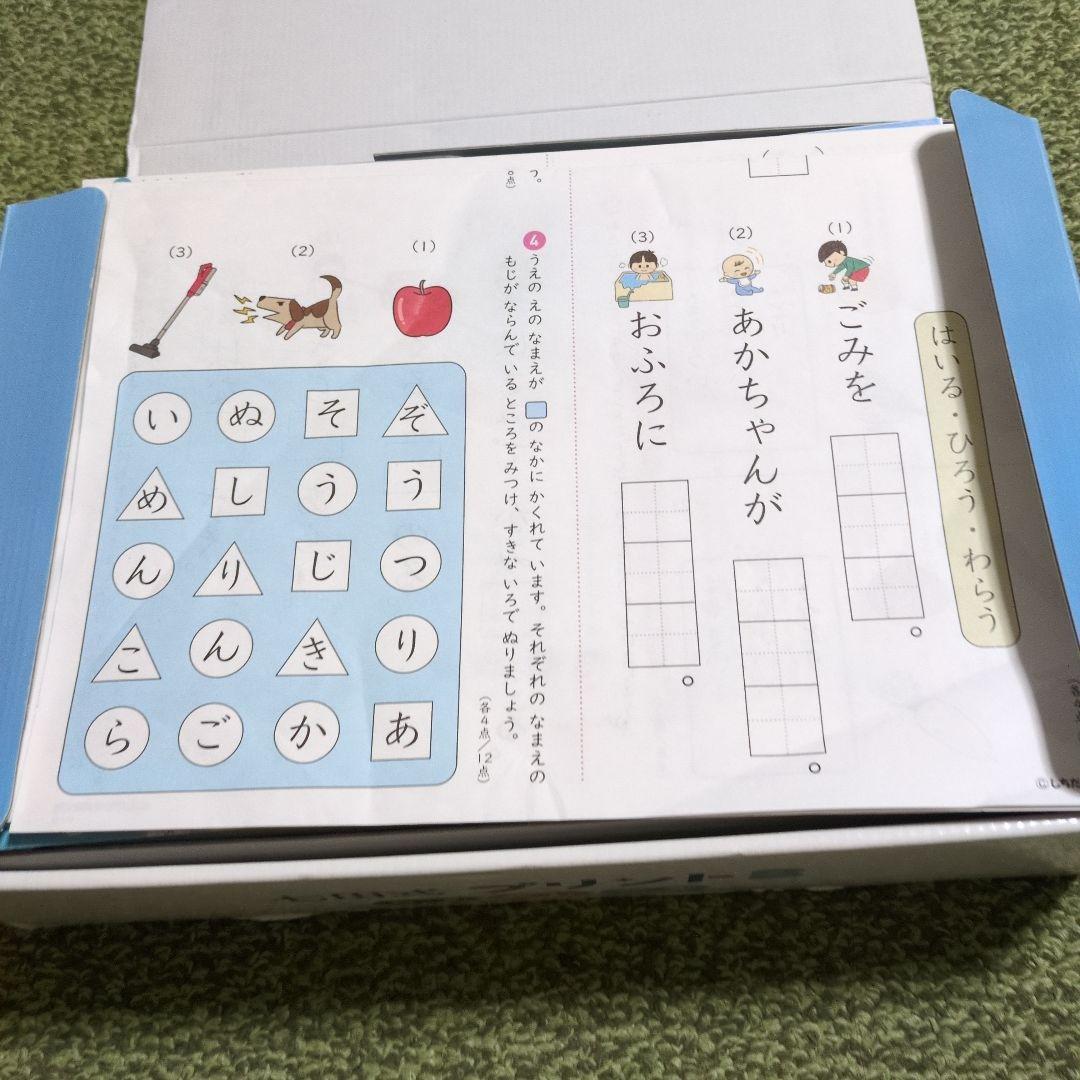 はいる・ひろう・わらう
(1)
ごみを
。
(2)
あかちゃんが
。
(3)
おふろに
。
つ。
4 うえの えの なまえが の なかに かくれて います。それぞれの なまえの
もじが ならんで いる ところを みつけ、すきな いろで ぬりましょう。
(各4点/12点)
(1)
(2)
(3)
い ぬ そ ぞ
め し う う
ん り じ つ
こ ん き り
ら ご か あ
プリント